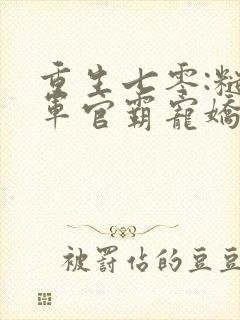 重生七零:糙
軍官霸寵嬌
被罰佔的豆豆